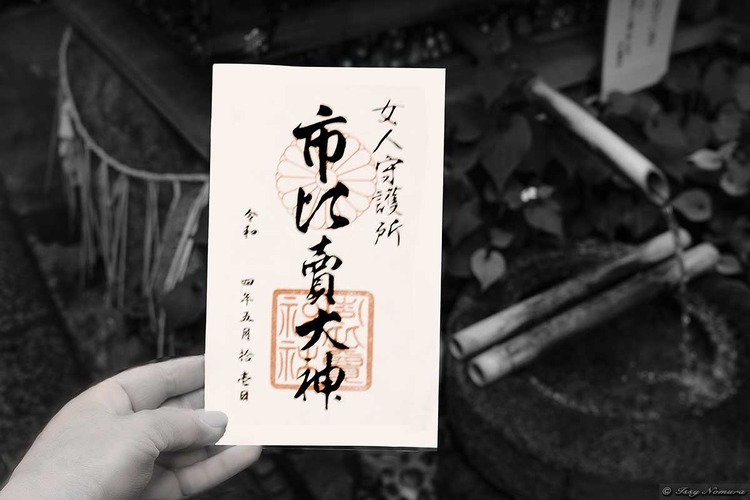 女人守護所
市比賣大神
令和 四年五月拾壱日
© Issy Nomura